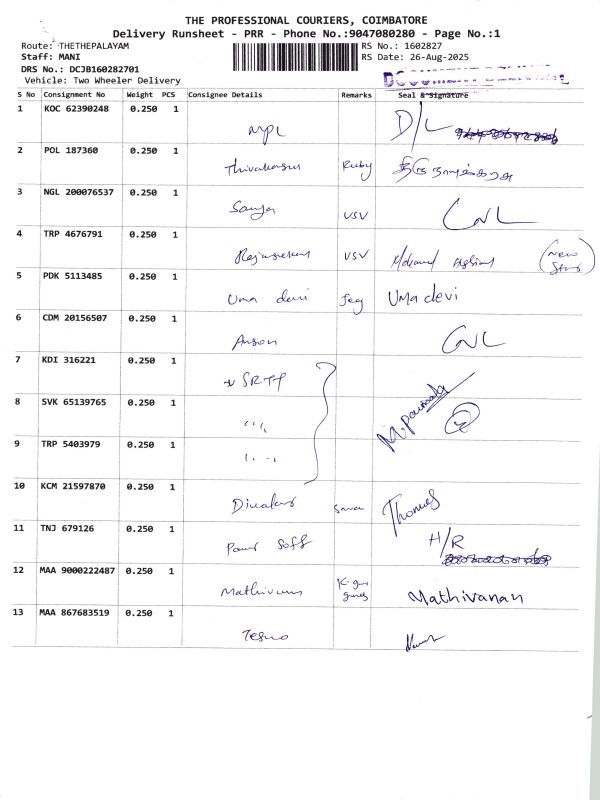 THE PROFESSIONAL COURIERS, COIMBATORE
Delivery Runsheet - PRR - Phone No.:9047080280 - Page No.:1
Route: THETHEPALAYAM RS No.: 1602827
Staff: MANI RS Date: 26-Aug-2025
DRS No.: DCJB160282701
Vehicle: Two Wheeler Delivery
S No Consignment No Weight PCS Consignee Details Remarks Seal & Signature
1 KOC 62390248 0.250 1 MPL D/L
2 POL 187360 0.250 1 Ruby
3 NGL 200076537 0.250 1 Sanya VSV CNL
4 TRP 4676791 0.250 1 VSV (New
5 PDK 5113485 0.250 1 Uma devi Uma devi
6 CDM 20156507 0.250 1 CNL
7 KDI 316221 0.250 1
8 SVK 65139765 0.250 1
9 TRP 5403979 0.250 1
10 KCM 21597870 0.250 1 Thomas
11 TNJ 679126 0.250 1 Soff H/R
12 MAA 9000222487 0.250 1 Mathivanan
13 MAA 867683519 0.250 1